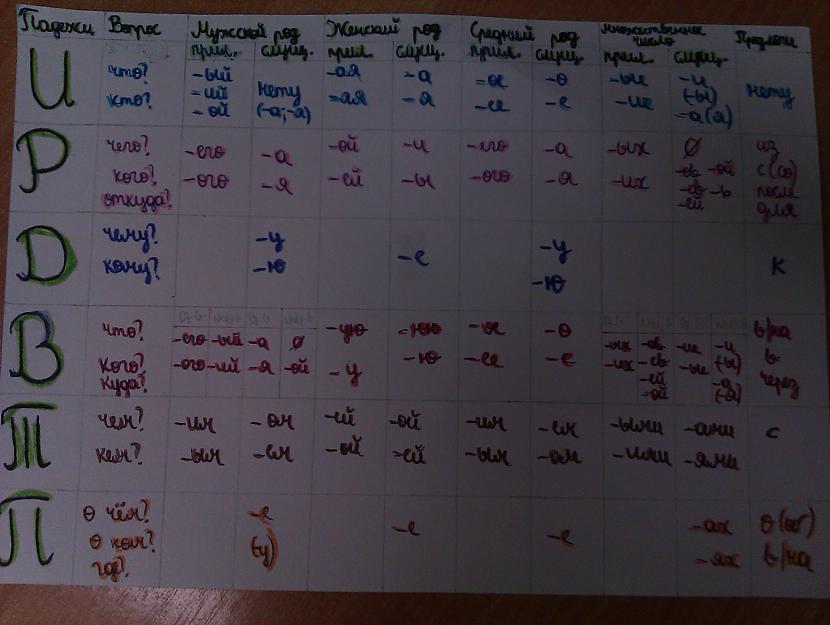 Падежи Вопрос Мужской род Женский род Средний род множественное число Предлоги
прил. сущ. прил. сущ. прил. сущ. прил. сущ.
И что? -ый -ая -а -ое -о -ые -и
кто? -ий нету -ая -я -ее -е -ие (-ы) нету
-ой (-а;-я) -а(я)
Р чего? -его -а -ой -и -его -а -ых ∅ из
кого? -ого -я -ей -ы -ого -я -их -ов -ой с(со)
откуда? -ев -ь после
-ей для
Д чему? -у -у
кому? -ю -е -ю к
В что? -его -ый -а ∅ -ую -ые -о -ых -ов -ие -и в/на
кого? -ого -ий -я -ой -у -ю -ее -е -их -ев -ые (-ы) в
куда? -ей -а через
-ой (-я)
Т чем? -им -ом -ей -ой -им -ем -ыми -ами с
кем? -ым -ем -ой -ей -ым -ом -ими -ями
П о чём? -е -ах о(об)
о ком? (у) -е -е
где? -ях в/на